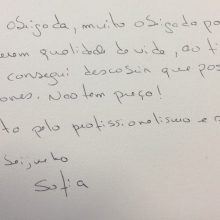 obrigada, muito obrigada po
erem qualidade de vida, ao fi
consegui descobrir que pos
ones. Nao tem preço!
to pelo profissionalismo e
Beijinho
Sofia